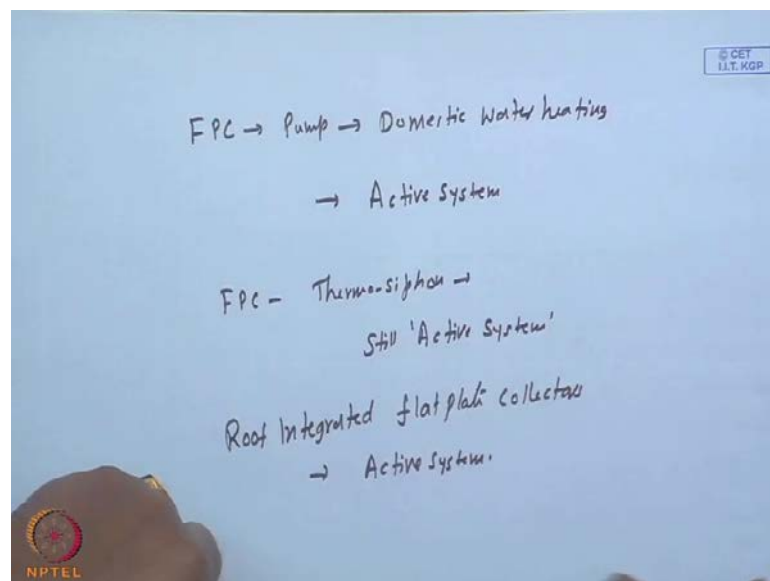 © CET
I.I.T. KGP
FPC → Pump → Domestic Water heating
→ Active System
FPC - Thermo-siphon →
Still 'Active System'
Roof Integrated flat plate collectors
→ Active System.
NPTEL